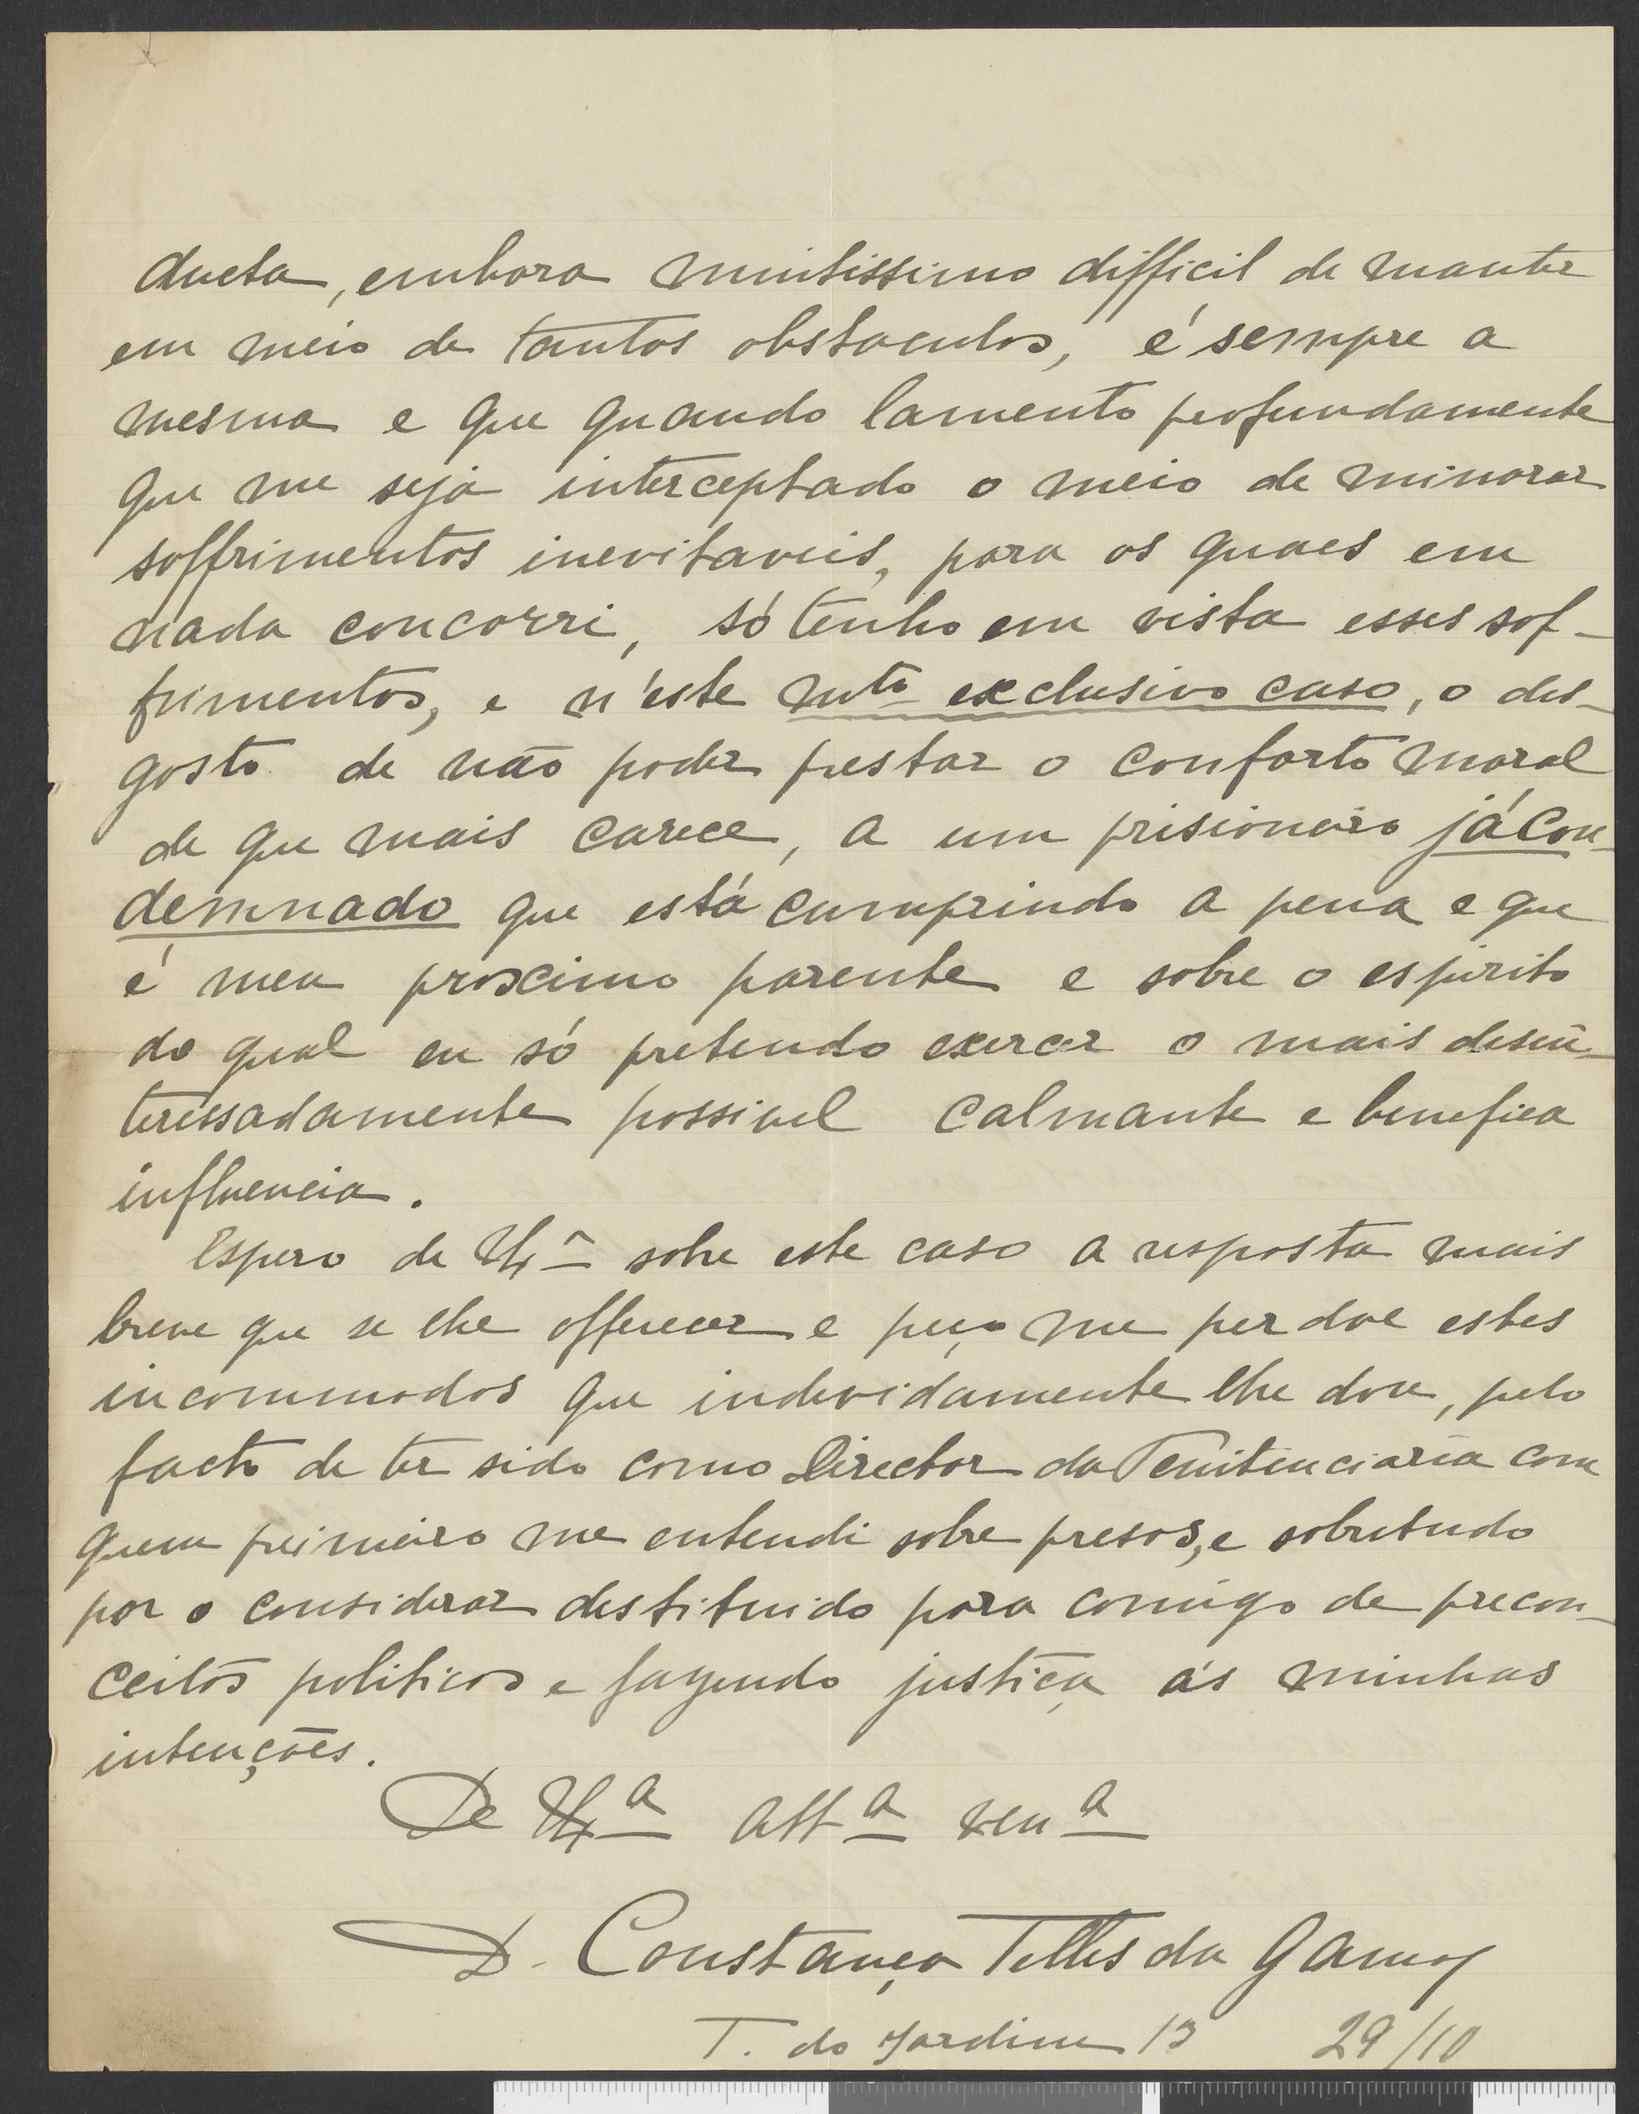 ducta, embora muitissimo difficil de manter
em meio de tantos obstaculos, é sempre a
mesma e que quando lamento profundamente
que me seja interceptado o meio de minorar
soffrimentos inevitaveis, para os quaes em
nada concorri, só tenho em vista esses sof-
frimentos, e n'este mto exclusivo caso, o des-
gosto de não poder prestar o conforto moral
de que mais carece, a um prisioneiro já con-
demnado que está cumprindo a pena e que
é meu proximo parente e sobre o espirito
do qual eu só pretendo exercer o mais desin-
teressadamente possivel calmante e benefica
influencia.
Espero de V. Exª sobre este caso a resposta mais
breve que se lhe offerecer e peço me perdoe estes
incommodos que indevidamente lhe dou, pelo
facto de ter sido como Director da Penitenciaria com
quem primeiro me entendi sobre presos, e sobretudo
por o considerar destituido para comigo de precon-
ceitos politicos e fazendo justiça ás minhas
intenções.
De V. Exª attª venª
D. Constança Telles da Gama
T. do Jardim 13 29/10